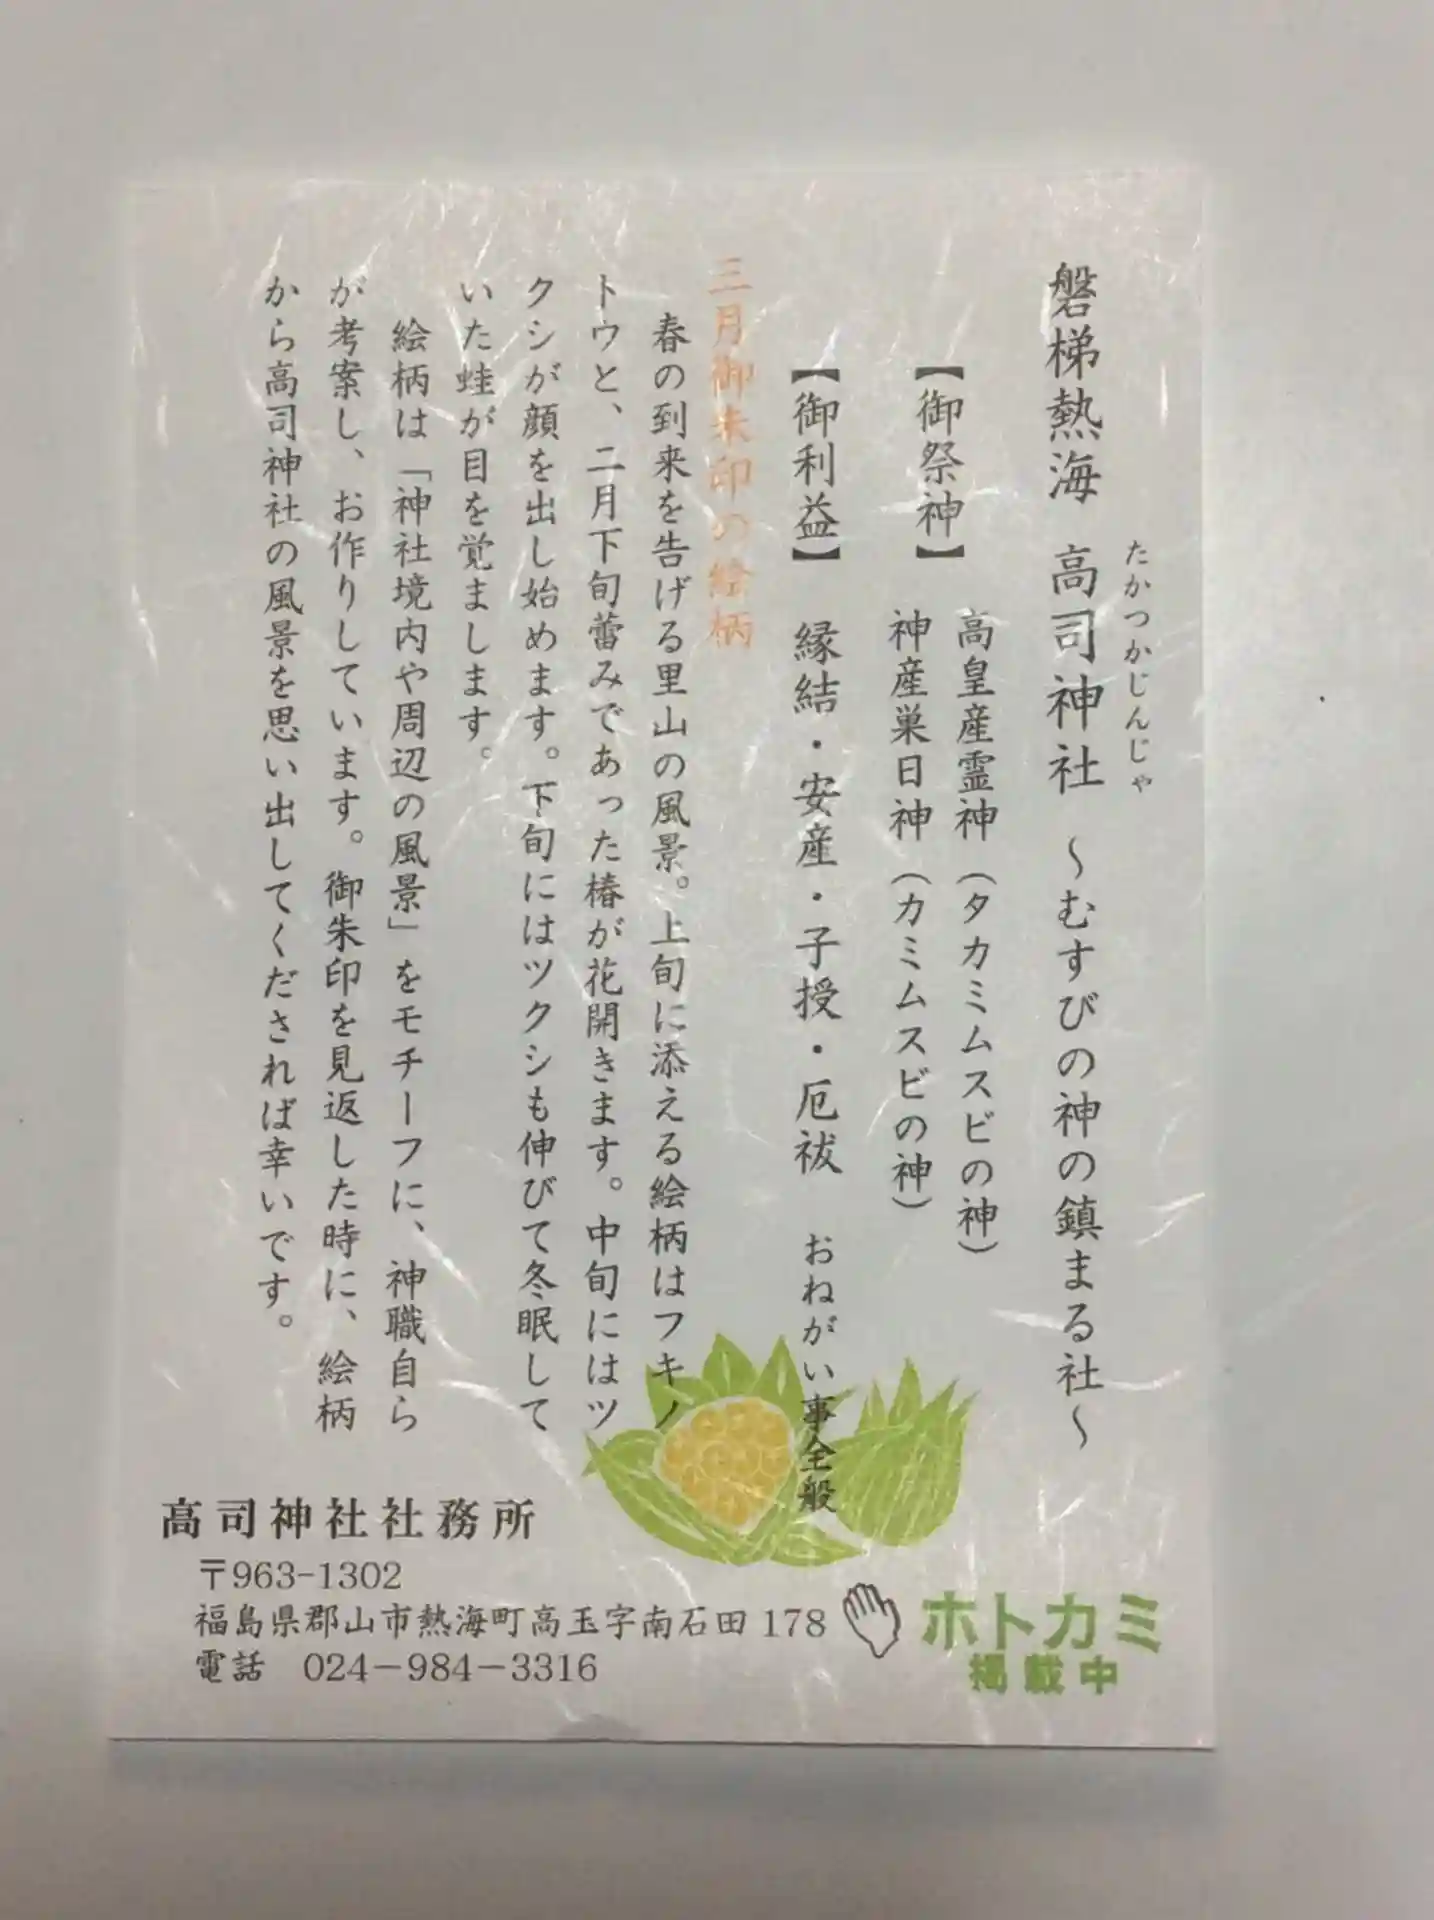 たかつかじんじゃ
磐梯熱海 高司神社 ～むすびの神の鎮まる社～
【御祭神】 高皇産霊神（タカミムスビの神）
神産巣日神（カミムスビの神）
【御利益】 縁結・安産・子授・厄祓 おねがい事全般
三月御朱印の絵柄
春の到来を告げる里山の風景。上旬に添える絵柄はフキノ
トウと、二月下旬蕾みであった椿が花開きます。中旬にはツ
クシが顔を出し始めます。下旬にはツクシも伸びて冬眠して
いた蛙が目を覚まします。
絵柄は「神社境内や周辺の風景」をモチーフに、神職自ら
が考案し、お作りしています。御朱印を見返した時に、絵柄
から高司神社の風景を思い出してくだされば幸いです。
高司神社社務所
〒963-1302
福島県郡山市熱海町高玉字南石田 178
電話 024－984－3316
ホトカミ
掲載中